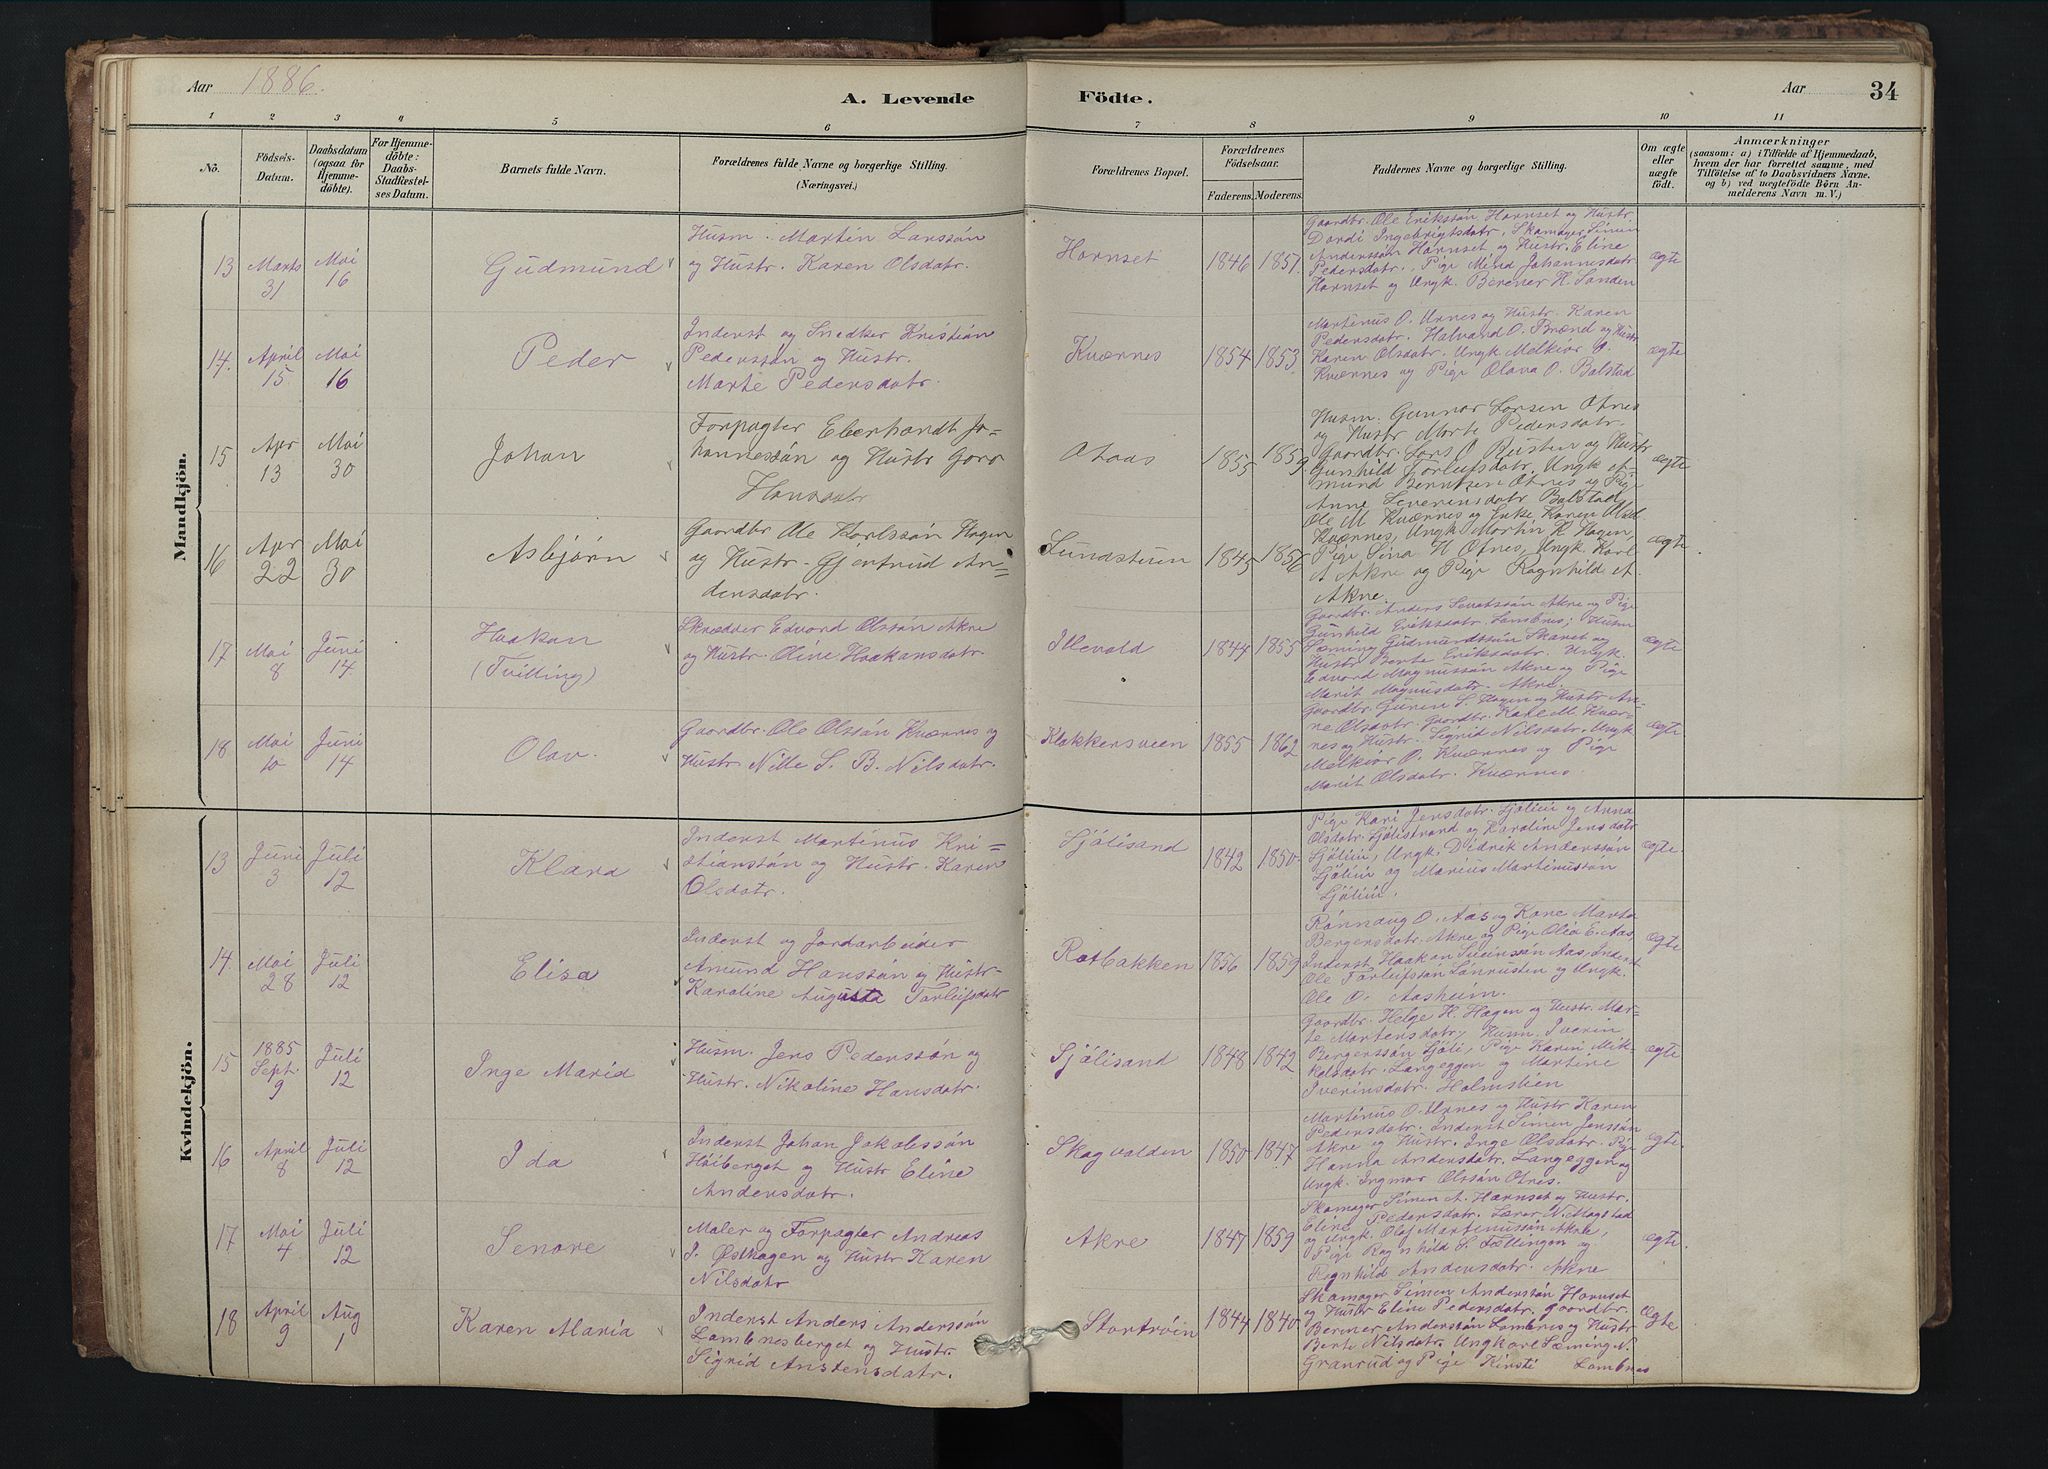 Aar 1886.
A. Levende Födte.
Aar
34
1 2 3 4 5 6 7 8 9 10 11
No.
Födsels-Datum.
Daabsdatum (ogsaa for Hjemme-döbte).
For Hjemme-döbte: Daabs-Stadfæstel-ses Datum.
Barnets fulde Navn.
Forældrenes fulde Navne og borgerlige Stilling. (Næringsvei.)
Forældrenes Bopæl.
Forældrenes Födselsaar.
Faderens. Moderens.
Faddernes Navne og borgerlige Stilling.
Om ægte eller uægte födt.
Anmærkninger
(saasom: a) i Tilfælde af Hjemmedaab,
hvem der har forrettet samme, med
Tilföielse af to Daabsvidners Navne,
og b) ved uægtefödte Börn An-
melderens Navn m. V.)
Mandkjön.
13 Marts 31 Mai 16 Gudmund
Husm. Martin Larssön
og Hustr. Karen Olsdatr.
Hornset 1846 1851.
Gaardbr. Ole Erikssön Hornset og Hustr.
Dordi Ingebrigtsdatr, Skomager Simen
Anderssön Hornset og Hustr. Eline
Pedersdatr., Pige Johannesdatr
Hornset og Ungk. Berener H. Sanden
ægte
14. April 15 Mai 16 Peder
Inderst og Snedker Kristian
Pederssön og Hustr.
Marte Pedersdatr.
Kværnes 1854 1853
Martinus O. Urnes og Hustr. Karen
Pedersdatr. Halvard O. Brænd og Hustr
Karen Olsdatr. Ungk. Melkiør O.
Kværnes og Pige Olava O. Balstad
ægte
15 Apr 13 Mai 30 Johan
Forpagter Eberhardt Jo-
hannessön og Hustr Goro
Hansdatr
Aaas 1855 1859
Husm. Gunnar Larsen Otnes
og Hustr Marte Pedersdatr.
Gaardbr. Lars O Busten og Hustr
Gunhild Torleifsdatr. Ungk A-
mund Berntsen Otnes og Pige
Anne Severinsdatr Balstad
ægte
16 Apr 22 Mai 30 Asbjörn
Gaardbr Ole Karlssön Hagen
og Hustr. Gjertrud An-
dersdatr.
Lundstuen 1845 1856
Ole M Kværnes og Enke Karen Olsd
Kværnes, Ungk. Martin K Hagen
Pige Sina H Otnes, Ungk. Karl
A Akre og Pige Ragnhild A.
Akre.
ægte.
17 Mai 8 Juni 14 Haakon (Tvilling)
Skrædder Edvard Olssön Akre
og Hustr. Oline Haakonsdatr.
Illevold 1844 1855
Gaardbr. Anders Akre og Pige
Gunhild Eriksdatr. Lombnes; Husm
Sæming Gudmundssön Skaret og
Hustr Berte Eriksdatr. Ungk.
Edvard Magnussön Akre og Pige
Marit Magnusdatr. Akre.
ægte
18 Mai 10 Juni 14 Olav.
Gaardbr. Ole Olssön Kværnes og
Hustr Nille S. B. Nilsdatr.
Klokkersveen 1855 1862
Gaardbr Guren S. Hagen og Hustr An-
ne Olsdatr. Gaardbr. Kael M. Kvær-
nes og Hustr. Sigrid Nilsdatr. Ungk
Melkiør O. Kværnes og Pige
Marit Olsdatr. Kværnes.
ægte
Kvindekjön.
13 Juni 3 Juli 12 Klara
Inderst Martinus Kri-
stianssön og Hustr. Karen
Olsdatr.
Sjölisand 1842 1850
Pige Kari Jensdatr. Sjöliui og Anna
Olsdatr. Sjölistrand og Karoline Jensdatr
Sjöliui, Ungk. Didrek Anderssön
Sjöliui og Marius Martinussön
Sjöliui.
ægte.
14. Mai 28 Juli 12 Elisa
Inderst og Jordarbeider
Amund Hanssön og Hustr.
Karoline Augusta Torleifsdatr
Rotbakken 1856 1859
Rönnaug O. Aas og Kone Marta
Bergersdatr. Akre og Pige Olia E. Aas,
Inderst Haakon Sveinssön Aas, Inderst
Ole Torleifssön Lönrusten og Ungk.
Ole O. Aasheim.
ægte
15 1885 Sept. 9 Juli 12 Inge Marie
Husm. Jens Pederssön og
Hustr. Nikoline Hansdatr.
Sjölisand 1848 1842
Gaardbr. Helge H. Hagen og Hustr. Mar-
te Martensdatr, Husm. Iverin
Bergerssön Sjöli, Pige Karen Mik-
kelsdatr. Langeggen og Martine
Iverinsdatr. Holmstien
ægte
16 April 8 Juli 12 Ida
Inderst Johan Jakobssön
Höiberget og Hustr Eline
Andersdatr.
Skogvolden 1850 1847
Martinus O. Urnes og Hustr Karen
Pedersdatr. Inderst Simen Jenssön
Akre og Hustr. Inge Olsdatr. Pige
Hanna Andersdatr. Langeggen og
Ungk. Ingmar Olssön Otnes.
ægte.
17 Mai 4 Juli 12 Senore
Maler og Forpagter Andreas
J. Østhagen og Hustr Karen
Nilsdatr
Akre 1847 1859
Skomager Simen A. Hornset og Hustr.
Eline Pedersdatr. Lærer N. Mogstad
og Ungk. Olaf Martinussön Akre,
Pige Ragnhild S. Fællingen og
Ragnhild Andersdatr. Akre
ægte.
18 April 9 Aug 1 Karen Maria
Inderst Anders Anderssön
Lombnesberget og Hustr.
Sigrid Anstensdatr.
Stortröen 1844 1840
Skomager Simen Anderssön Hornset
og Hustr Eline Pedersdatr. Gaardbr.
Berner Anderssön Lombnes og Hustr
Berte Nilsdatr. Ungkarl Sæming N.
Granrud og Pige Kirsti Lombnes
Ægte